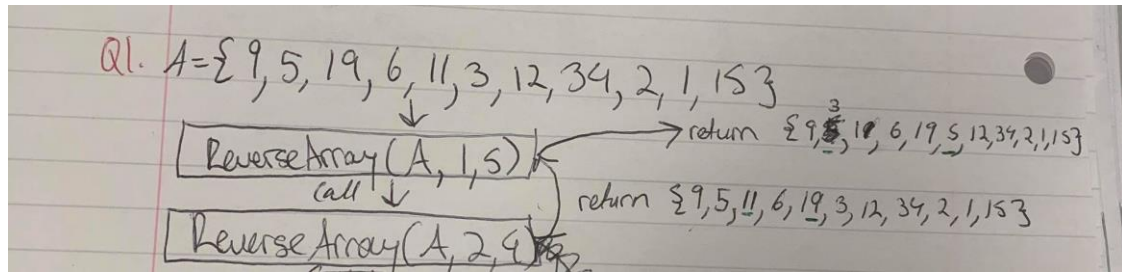 Q1. A={9, 5, 19, 6, 11, 3, 12, 34, 2, 1, 15}
ReverseArray(A, 1, 5)
return {9, 3, 11, 6, 19, 5, 12, 34, 2, 1, 15}
call
return {9, 5, 11, 6, 19, 3, 12, 34, 2, 1, 15}
ReverseArray(A, 2, 4)